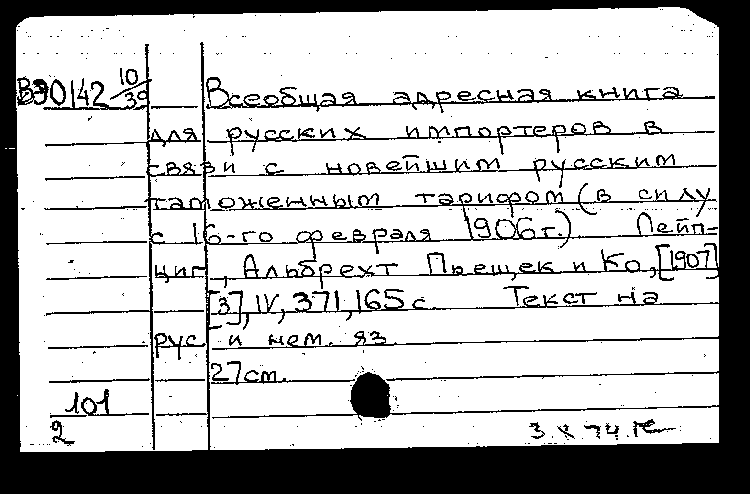 ВЭ0142 10/39 Всеобщая адресная книга
для русских импортеров в
связи с новейшим русским
таможенным тарифом (в силу
с 16-го февраля 1906 г.) Лейп-
циг, Альбрехт Пьещек и Ко, [1907]
[3], IV, 371, 165 с. Текст на
рус. и нем. яз.
27 см.
101
2
3 X 74 г.